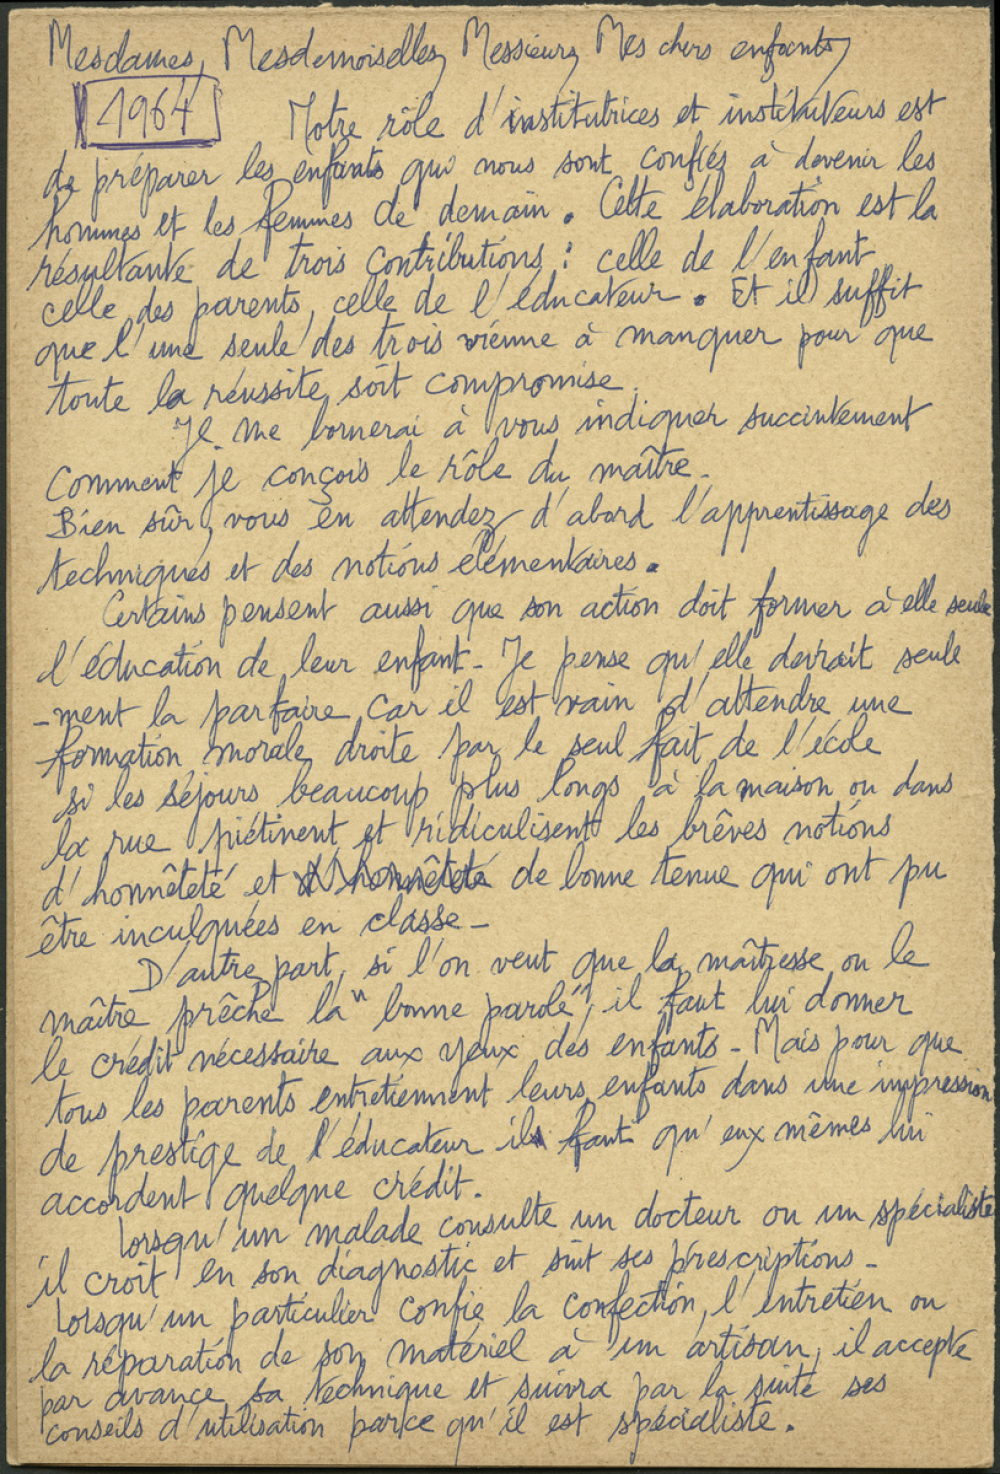 Mesdames, Mesdemoiselles, Messieurs, Mes chers enfants,
1964
Notre rôle d'institutrices et instituteurs est
de préparer les enfants qui nous sont confiés à devenir les
hommes et les femmes de demain. Cette élaboration est la
résultante de trois contributions : celle de l'enfant,
celle des parents, celle de l'éducateur. Et il suffit
que l'une seule des trois vienne à manquer pour que
toute la réussite soit compromise.
Je me bornerai à vous indiquer succintement
comment je conçois le rôle du maître.
Bien sûr, vous en attendez d'abord l'apprentissage des
techniques et des notions élémentaires.
Certains pensent aussi que son action doit former à elle seule
l'éducation de leur enfant - Je pense qu'elle devrait seule
-ment la parfaire, car il est vain d'attendre une
formation morale droite par le seul fait de l'école
si les séjours beaucoup plus longs à la maison ou dans
la rue piétinent et ridiculisent les brêves notions
d'honnêteté et d'honnêteté de bonne tenue qui ont pu
être inculquées en classe -
D'autre part, si l'on veut que la maîtresse ou le
maître prêche la "bonne parole", il faut lui donner
le crédit nécessaire aux yeux des enfants - Mais pour que
tous les parents entretiennent leurs enfants dans une impression
de prestige de l'éducateur il faut qu'eux mêmes lui
accordent quelque crédit.
Lorsqu'un malade consulte un docteur ou un spécialiste
il croit en son diagnostic et suit ses prescriptions -
Lorsqu'un particulier confie la confection, l'entretien ou
la réparation de son matériel à un artisan, il accepte
par avance sa technique et suivra par la suite ses
conseils d'utilisation parce qu'il est spécialiste.